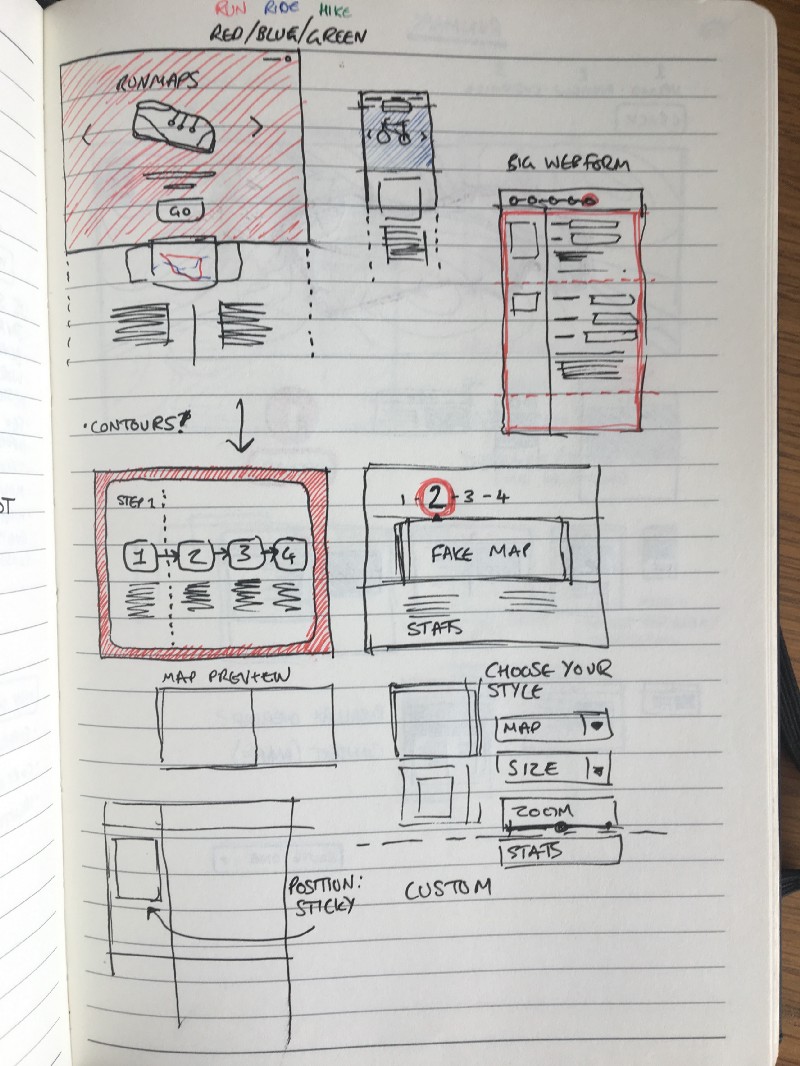 RUN RIDE HIKE
RED/BLUE/GREEN
RUNMAPS
GO
BIG WEBFORM
• CONTOURS?
STEP 1
1 2 3 4
1 - 2 - 3 - 4
FAKE MAP
STATS
MAP PREVIEW
CHOOSE YOUR
STYLE
MAP
SIZE
ZOOM
STATS
POSITION:
STICKY
CUSTOM